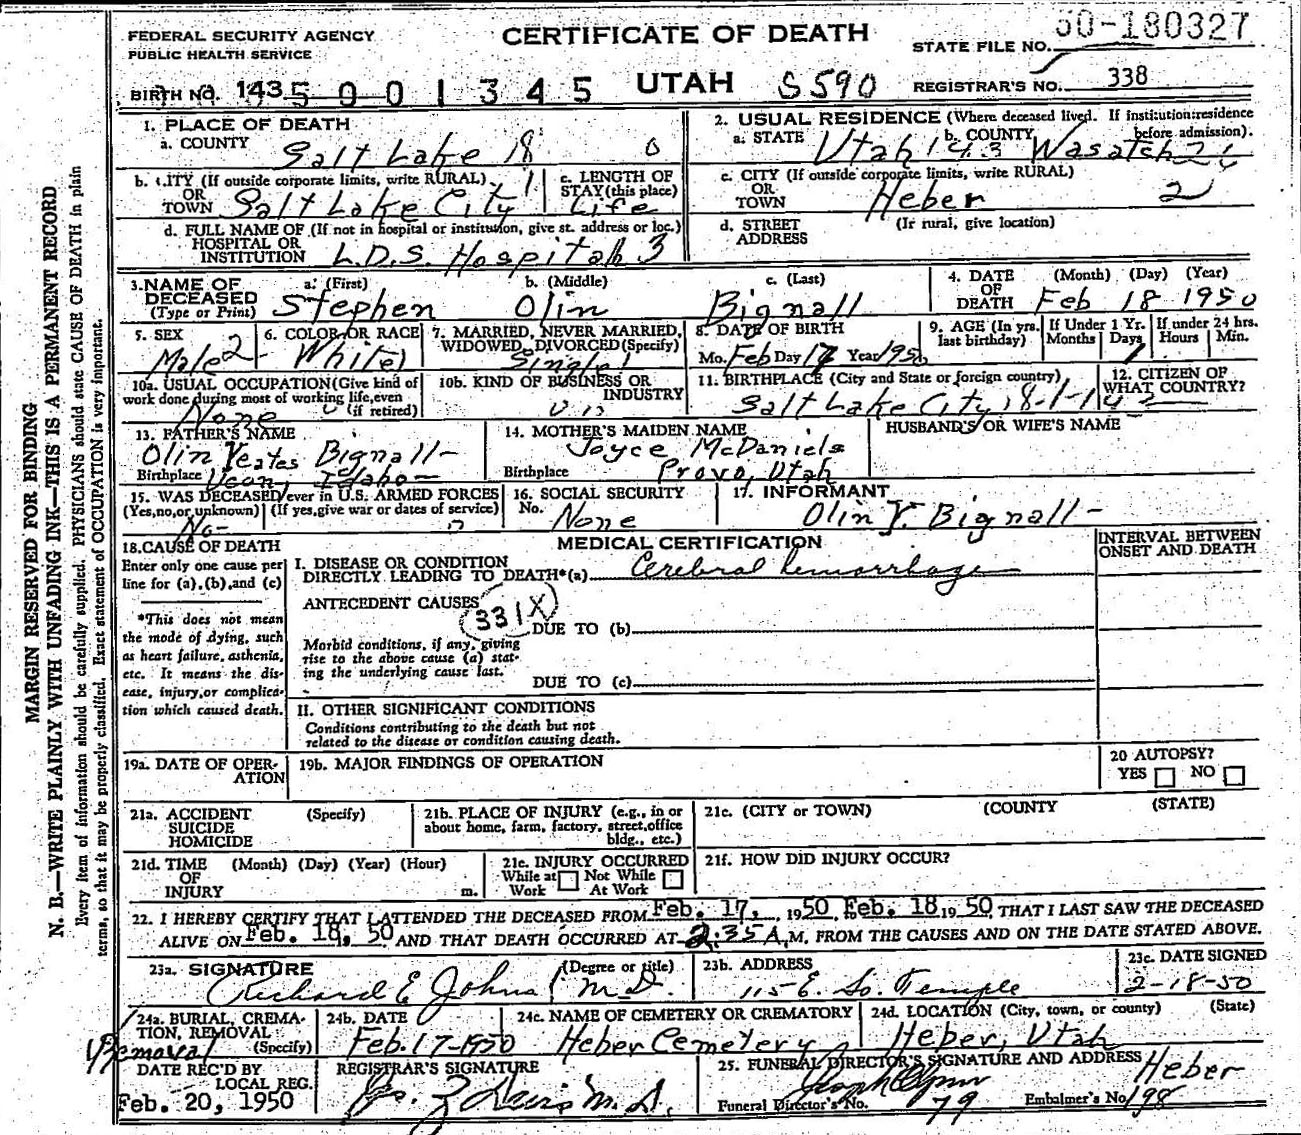 FEDERAL SECURITY AGENCY
PUBLIC HEALTH SERVICE
CERTIFICATE OF DEATH
STATE FILE NO. 50-180327
BIRTH NO. 143 5 0 0 1 3 4 5
UTAH S590
REGISTRAR'S NO. 338
1. PLACE OF DEATH
a. COUNTY Salt Lake 18 0
2. USUAL RESIDENCE (Where deceased lived. If institution: residence before admission).
a. STATE Utah 143 b. COUNTY Wasatch 26
b. CITY (If outside corporate limits, write RURAL)
OR TOWN Salt Lake City 1
c. LENGTH OF STAY (this place) Life
c. CITY (If outside corporate limits, write RURAL)
OR TOWN Heber 2
d. FULL NAME OF (If not in hospital or institution, give st. address or loc.)
HOSPITAL OR INSTITUTION L.D.S. Hospital 3
d. STREET ADDRESS (If rural, give location)
3. NAME OF DECEASED (Type or Print)
a. (First) Stephen b. (Middle) Olin c. (Last) Bignall
4. DATE OF DEATH (Month) (Day) (Year) Feb 18 1950
5. SEX Male 2
6. COLOR OR RACE White 1
7. MARRIED, NEVER MARRIED, WIDOWED, DIVORCED (Specify) Single 1
8. DATE OF BIRTH Mo. Feb Day 17 Year 1950
9. AGE (In yrs. last birthday) If Under 1 Yr. Months Days 1 If under 24 hrs. Hours Min.
10a. USUAL OCCUPATION (Give kind of work done during most of working life, even if retired) None
10b. KIND OF BUSINESS OR INDUSTRY
11. BIRTHPLACE (City and State or foreign country) Salt Lake City, 18-1-143
12. CITIZEN OF WHAT COUNTRY?
13. FATHER'S NAME Olin Yeates Bignall
Birthplace Idaho
14. MOTHER'S MAIDEN NAME Joyce McDaniels
Birthplace Provo, Utah
HUSBAND'S OR WIFE'S NAME
15. WAS DECEASED ever in U.S. ARMED FORCES
(Yes, no, or unknown) (If yes, give war or dates of service) No
16. SOCIAL SECURITY No. None
17. INFORMANT Olin Y. Bignall
18. CAUSE OF DEATH
Enter only one cause per line for (a), (b), and (c)
*This does not mean the mode of dying, such as heart failure, asthenia, etc. It means the disease, injury, or complication which caused death.
MEDICAL CERTIFICATION
INTERVAL BETWEEN ONSET AND DEATH
I. DISEASE OR CONDITION
DIRECTLY LEADING TO DEATH*(a) Cerebral hemorrhage
ANTECEDENT CAUSES 331X
DUE TO (b)
Morbid conditions, if any, giving rise to the above cause (a) stating the underlying cause last.
DUE TO (c)
II. OTHER SIGNIFICANT CONDITIONS
Conditions contributing to the death but not related to the disease or condition causing death.
19a. DATE OF OPERATION
19b. MAJOR FINDINGS OF OPERATION
20 AUTOPSY?
YES NO
21a. ACCIDENT SUICIDE HOMICIDE (Specify)
21b. PLACE OF INJURY (e.g., in or about home, farm, factory, street, office bldg., etc.)
21c. (CITY or TOWN) (COUNTY (STATE)
21d. TIME OF INJURY (Month) (Day) (Year) (Hour) m.
21e. INJURY OCCURRED
While at Work Not While At Work
21f. HOW DID INJURY OCCUR?
22. I HEREBY CERTIFY THAT I ATTENDED THE DECEASED FROM Feb. 17, 1950, Feb. 18, 1950, THAT I LAST SAW THE DECEASED
ALIVE ON Feb. 18, 50, AND THAT DEATH OCCURRED AT 2:35 A.M. FROM THE CAUSES AND ON THE DATE STATED ABOVE.
23a. SIGNATURE (Degree or title) Richard E Johns M.D.
23b. ADDRESS 115 E. So. Temple
23c. DATE SIGNED 2-18-50
24a. BURIAL, CREMATION, REMOVAL (Specify) Removal
24b. DATE Feb. 17-1950
24c. NAME OF CEMETERY OR CREMATORY Heber Cemetery
24d. LOCATION (City, town, or county) (State) Heber, Utah
DATE REC'D BY LOCAL REG. Feb. 20, 1950
REGISTRAR'S SIGNATURE M.D.
25. FUNERAL DIRECTOR'S SIGNATURE AND ADDRESS Heber
Funeral Director's No. 79 Embalmer's No. 198
MARGIN RESERVED FOR BINDING
N. B.—WRITE PLAINLY WITH UNFADING INK—THIS IS A PERMANENT RECORD
Every item of information should be carefully supplied. PHYSICIANS should state CAUSE OF DEATH in plain
terms, so that it may be properly classified. Exact statement of OCCUPATION is very important.